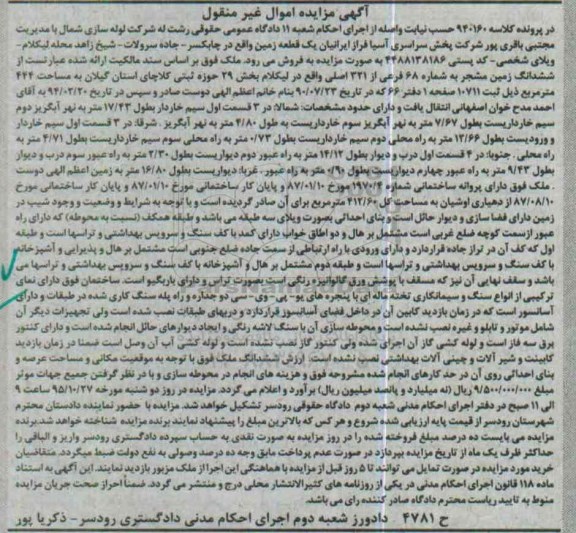 آگهی مزایده اموال غیر منقول
در پرونده کلاسه ۹۴۰۱۶۰ حسب نیابت واصله از اجرای احکام شعبه ۱۱ دادگاه عمومی حقوقی رشت له شرکت لوله سازی شمال با مدیریت
مجتبی باقری پور شرکت پخش سراسری آسیا فراز ایرانیان یک قطعه زمین واقع در چابکسر - جاده سرولات - شیخ زاهد محله لیکلام -
ویلای شخصی - کد پستی ۴۴۸۸۱۳۸۱۸۶ به صورت مزایده به فروش می رود. ملک فوق بر اساس سند مالکیت ارائه شده عبارتست از
ششدانگ زمین مشجر به شماره ۶۸ فرعی از ۳۲۱ اصلی واقع در لیکلام بخش ۲۹ حوزه ثبتی کلاچای استان گیلان به مساحت ۴۴۴
مترمربع ذیل ثبت ۱۰۷۱۱ صفحه ۱ دفتر ۶۶ که در تاریخ ۹۰/۰۷/۲۳ بنام خانم اعظم الهی دوست صادر و سپس در تاریخ ۹۴/۰۲/۲۰ به آقای
احمد مدح خوان اصفهانی انتقال یافت و دارای حدود مشخصات: شمالا: در ۳ قسمت اول سیم خاردار بطول ۱۷/۴۳ متر به نهر آبگریز دوم
سیم خارداریست بطول ۷/۶۷ متر به نهر آبگریز سوم خارداریست به طول ۴/۸۰ متر به نهر آبگریز . شرقا: در ۳ قسمت اول سیم خاردار
و ورودیست بطول ۱۳/۶۶ متر به راه محلی دوم سیم خارداریست بطول ۰/۷۳ متر به راه محلی سوم سیم خارداریست بطول ۴/۷۱ متر به
راه محلی . جنوبا: در ۴ قسمت اول درب و دیوار بطول ۱۴/۱۲ متر به راه عبور دوم دیواریست بطول ۲/۳۰ متر به راه عبور سوم درب و دیوار
بطول ۹/۴۳ متر به راه عبور چهارم دیواریست بطول ۰/۹۰ متر به راه عبور . غربا: دیواریست بطول ۱۶/۸۰ متر به زمین اعظم الهی دوست
. ملک فوق دارای پروانه ساختمانی شماره ۱۹۷۰۴ مورخ ۸۷/۰۱/۱۰ و پایان کار ساختمانی مورخ ۸۷/۰۱/۱۰ و پایان کار ساختمانی مورخ
۸۷/۰۸/۱۰ از دهیاری اوشیان به مساحت کل ۲۱۲/۶۰ مترمربع برای آن صادر گردیده است و با توجه به شرایط و وضعیت و وجود شیب در
زمین دارای فضا سازی و دیوار حائل است و بنای احداثی بصورت ویلای سه طبقه می باشد و طبقه همکف (نسبت به محوطه) که دارای راه
عبور ازسمت کوچه ضلع غربی است مشتمل بر هال و دو اطاق خواب دارای کمد با کف سنگ و سرویس بهداشتی و تراسها است و طبقه
اول که کف آن در تراز جاده قراردارد و دارای ورودی با راه ارتباطی از سمت جاده ضلع جنوبی است مشتمل بر هال و پذیرایی و آشپزخانه
با کف سنگ و سرویس بهداشتی و تراسها است و طبقه دوم مشتمل بر هال و آشپزخانه با کف سنگ و سرویس بهداشتی و تراسها می
باشد و سقف نهایی آن نیز که مسقف با پوشش ورق گالوانیزه رنگی است به صورت تراس و دارای باربکیو است. ساختمان فوق دارای نمای
ترکیبی از انواع سنگ و سیمانکاری تخته ماله ای با پنجره های یو - پی - وی - سی دو جداره و راه پله سنگ کاری شده در طبقات و دارای
آسانسور است که در زمان بازدید کابین آن در داخل فضای آسانسور قراردارد و دربهای طبقات نصب شده است ولی تجهیزات دیگر آن
شامل موتور و تابلو و غیره نصب نشده است و محوطه سازی آن با سنگ لاشه رنگی و ایجاد دیوارهای حائل انجام شده است و دارای کنتور
برق سه فاز است و لوله کشی گاز آن اجرای شده ولی کنتور گاز نصب نشده است و لوله کشی آب آن وصل است ضمنا در زمان بازدید
کابینت و شیر آلات و چینی آلات بهداشتی نصب نشده است. ارزش ششدانگ ملک فوق با توجه به موقعیت مکانی و مساحت عرصه و
بنای احداثی روی آن در حد کارهای انجام شده مشروحه فوق و هزینه های انجام در محوطه سازی و با در نظر گرفتن جمیع جهات موثر
مبلغ ۹/۵۰۰/۰۰۰/۰۰۰ ریال (نه میلیارد و پانصد میلیون ریال) برآورد و اعلام می گردد. مزایده در روز دو شنبه مورخه ۹۵/۱۰/۲۷ ساعت ۹
الی ۱۱ صبح در دفتر اجرای احکام مدنی شعبه دوم دادگاه حقوقی رودسر تشکیل خواهد شد. مزایده با حضور نماینده دادستان محترم
شهرستان رودسر از قیمت پایه ارزیابی شده شروع و هر کس که بالاترین مبلغ را پیشنهاد نمایند برنده مزایده شناخته خواهد شد.برنده
مزایده می بایست ده درصد مبلغ فروخته شده را در روز مزایده به صورت نقدی به حساب سپرده دادگستری رودسر واریز و الباقی را
حداکثر ظرف یک ماه از تاریخ مزایده بپردازد در صورت عدم پرداخت مابق وجه ده درصد وصولی به نفع دولت ضبط میگردد. متقاضیان
خرید مورد مزایده در صورت تمایل می توانند تا ۵ روز قبل از مزایده با هماهنگی این اجرا از ملک مزبور بازدید نمایند. این آگهی به استناد
ماده ۱۱۸ قانون اجرای احکام مدنی در یکی از روزنامه های کثیرالانتشار محلی درج و منتشر می گردد. ضمناً احراز صحت جریان مزایده
منوط به تایید ریاست محترم دادگاه صادر کننده رای می باشد.
ح ۴۷۸۱ دادورز شعبه دوم اجرای احکام مدنی دادگستری رودسر - ذکریا پور